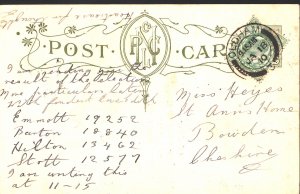 POST CARD
I am sending the
result of the election
More particulars later
with fondest love
Emmott 19252
Barton 18840
Hilton 13462
Stott 12577
I am writing this
at 11-15
Miss Heyes
St Anns Home
Bowdon
Cheshire
OLDHAM